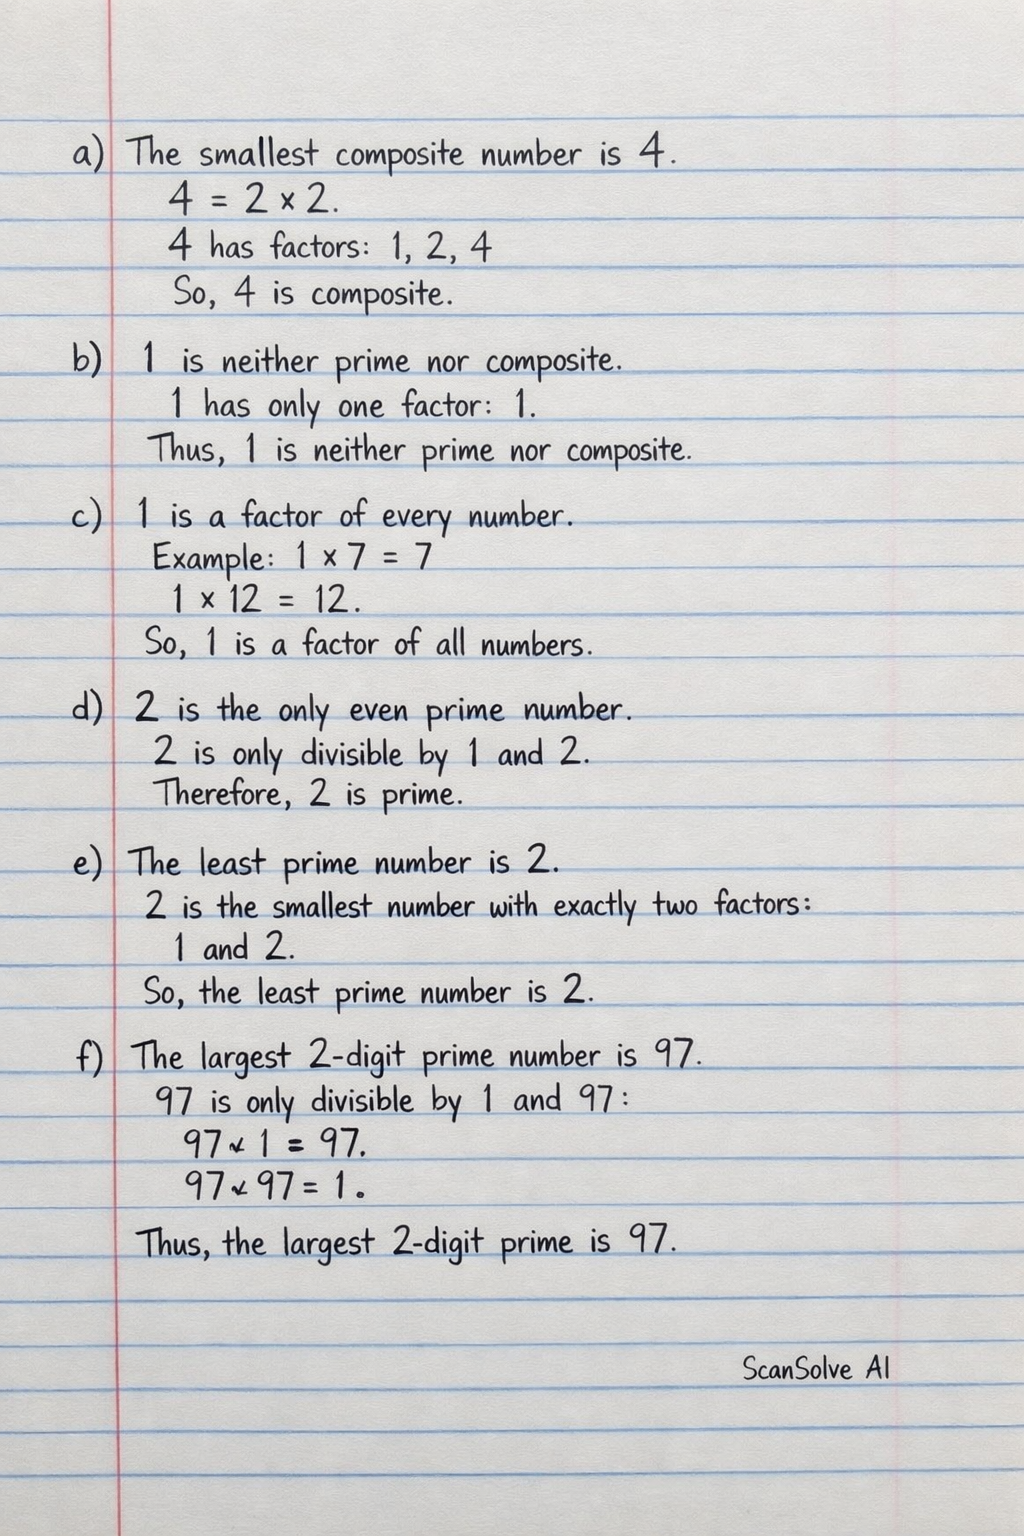 a) The smallest composite number is 4.
4 = 2 × 2.
4 has factors: 1, 2, 4
So, 4 is composite.
b) 1 is neither prime nor composite.
1 has only one factor: 1.
Thus, 1 is neither prime nor composite.
c) 1 is a factor of every number.
Example: 1 × 7 = 7
1 × 12 = 12.
So, 1 is a factor of all numbers.
d) 2 is the only even prime number.
2 is only divisible by 1 and 2.
Therefore, 2 is prime.
e) The least prime number is 2.
2 is the smallest number with exactly two factors:
1 and 2.
So, the least prime number is 2.
f) The largest 2-digit prime number is 97.
97 is only divisible by 1 and 97:
97 1 = 97.
97 97 = 1.
Thus, the largest 2-digit prime is 97.
ScanSolve AI